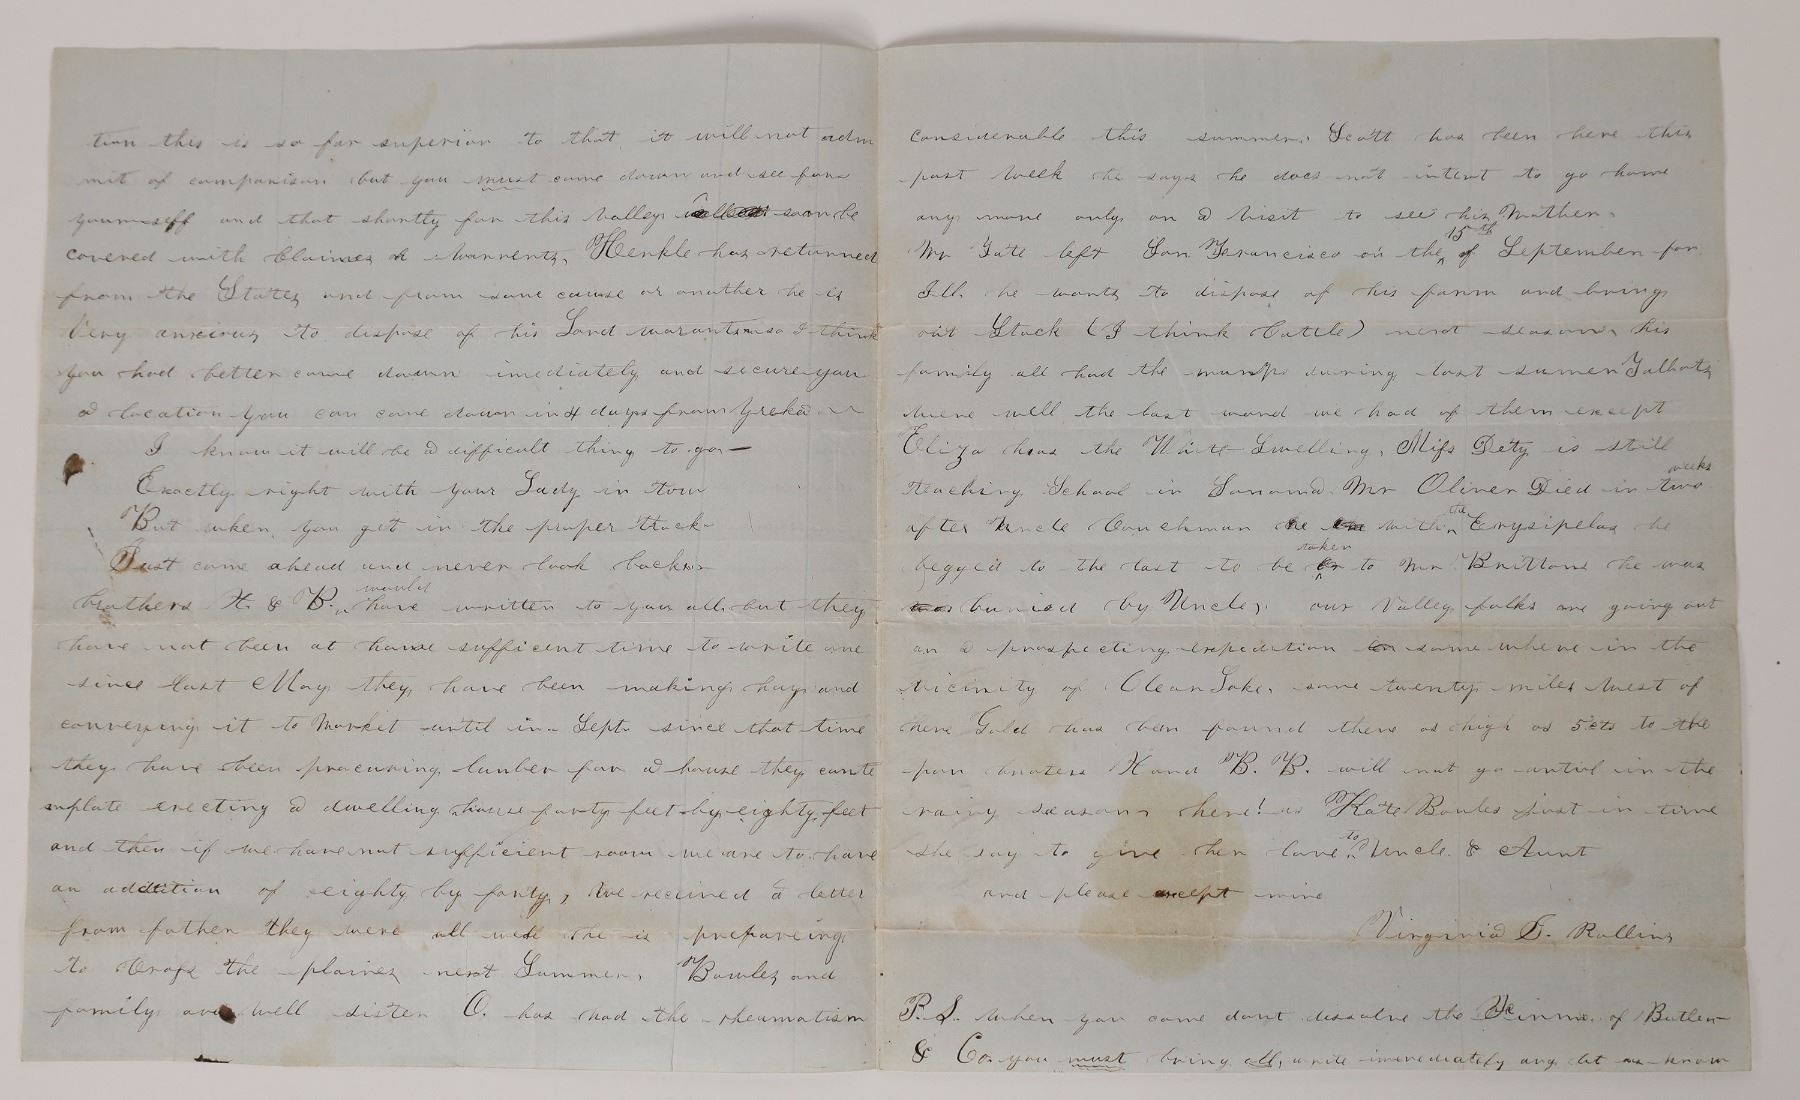 tion this is so far superior to that, it will not adm
mit of comparison but you must come down and see for
yourself and that shortly for this Valley will soon be
covered with Claimes & Warrents, Henkle has returned
from the States and from some cause or another he is
Very anxious to dispose of his Land warrants so I think
you had better come down imediately and secure you
a location you can come down in 4 days from Yreka
I know it will be a difficult thing to go
Exactly right with your Lady in tow
But when you get in the proper track
Just come ahead and never look back
brothers H. & B. would have written to you all but they
have not been at home sufficent time to write one
since last May they have been making hay and
conveying it to Market until in Sept. since that time
they have been procuring lumber for a house they conte
mplate erecting a dwelling house forty feet by eighty feet
and then if we have not sufficient room we are to have
an addition of eighty by forty, We received a letter
from father they were all well he is prepareing
to Cross the plaines next Summer, Bowles and
family are well sister O. has had the rheumatism
considerable this summer, Scott has been here this
past week he says he does not intent to go home
any more only on a Visit to see his Mother.
Mr Tate left San Francisco on the 15th of September for
Ill. he wants to dispose of his farm and bring
out Stock (I think Cattle) next season, his
family all had the mumps during last sumer Talbots
were well the last word we had of them except
Eliza has the White Swelling, Miss Dety is still
teaching School in Sonoma. Mr Oliver Died in two weeks
after Uncle Couchman with the Erysipelas he
begged to the last to be taken to Mr Brittons he was
buried by Uncle, our Valley folks are going out
on a prospecting expedition some where in the
vicinity of Clear Lake, some twenty miles West of
here Gold has been found there as high as 5 cts to the
pan broters H and B. B. will not go until in the
rainy season, here! is Kate Bowles just in time
she say to give her love to Uncle & Aunt
and please except mine
Virginia S. Rollins
P.S. when you come dont dissolve the Firm of Butler
& Co. you must bring all, write immediately any let us know